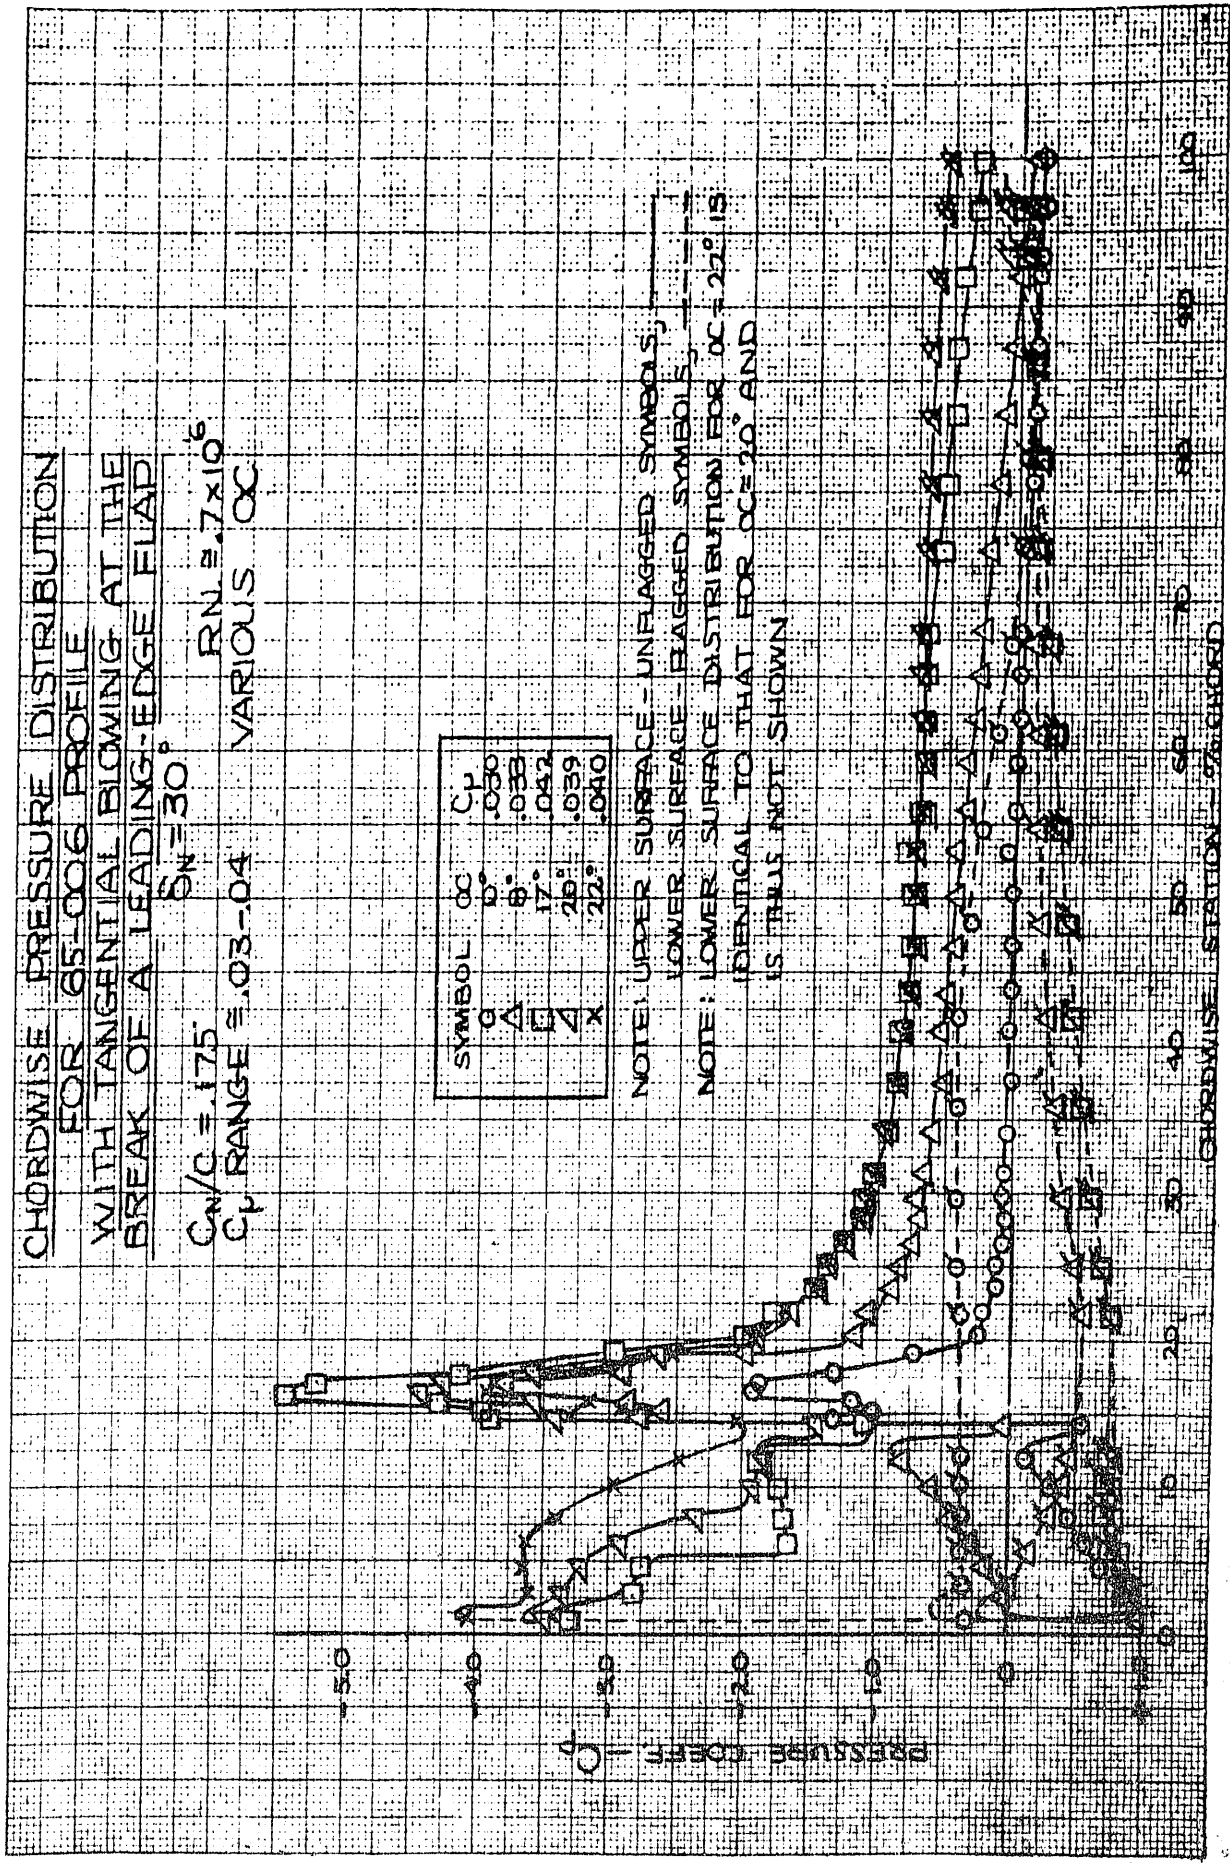 CHORDWISE PRESSURE DISTRIBUTION
FOR 65-006 PROFILE
WITH TANGENTIAL BLOWING AT THE
BREAK OF A LEADING-EDGE FLAP
δN = 30°
CN/C = .175 RN ≅ .7x10⁶
Cμ RANGE ≅ .03-.04 VARIOUS α
SYMBOL α Cμ
○ 0° .030
△ 8° .033
□ 17° .042
◁ 20° .039
x 22° .040
NOTE: UPPER SURFACE - UNFLAGGED SYMBOLS,
LOWER SURFACE - FLAGGED SYMBOLS,
NOTE: LOWER SURFACE DISTRIBUTION FOR α = 22° IS
IDENTICAL TO THAT FOR α = 20° AND
IS THUS NOT SHOWN
PRESSURE COEFF. - Cp
-5.0
-4.0
-3.0
-2.0
-1.0
0
+1.0
0 10 20 30 40 50 60 70 80 90 100
CHORDWISE STATION - % CHORD